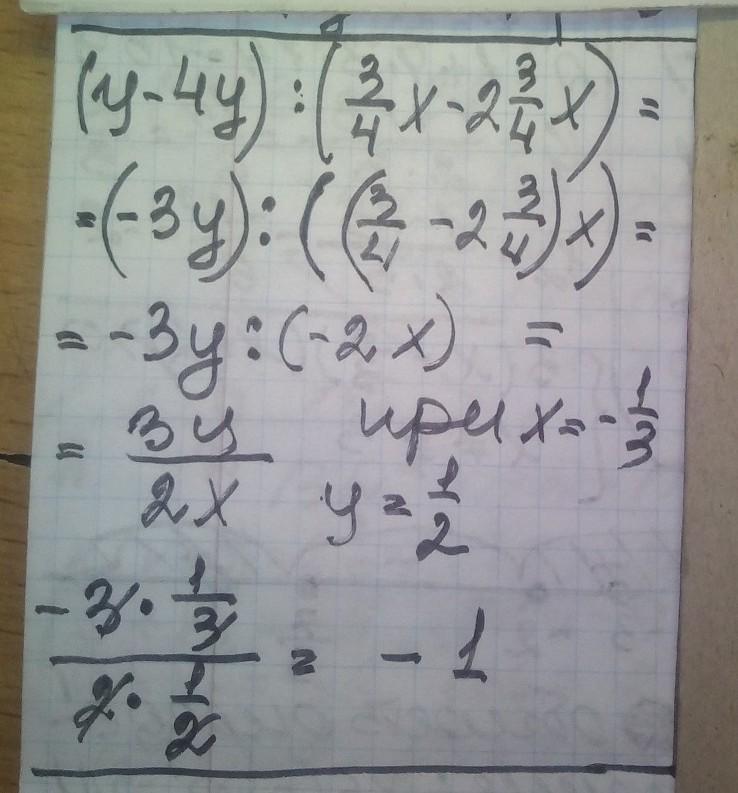 (y-4y):(3/4x-2 3/4x)=
=(-3y):((3/4-2 3/4)x)=
=-3y:(-2x) =
=3y/2x при x=-1/3
y=1/2
-3·1/3/2·1/2=-1